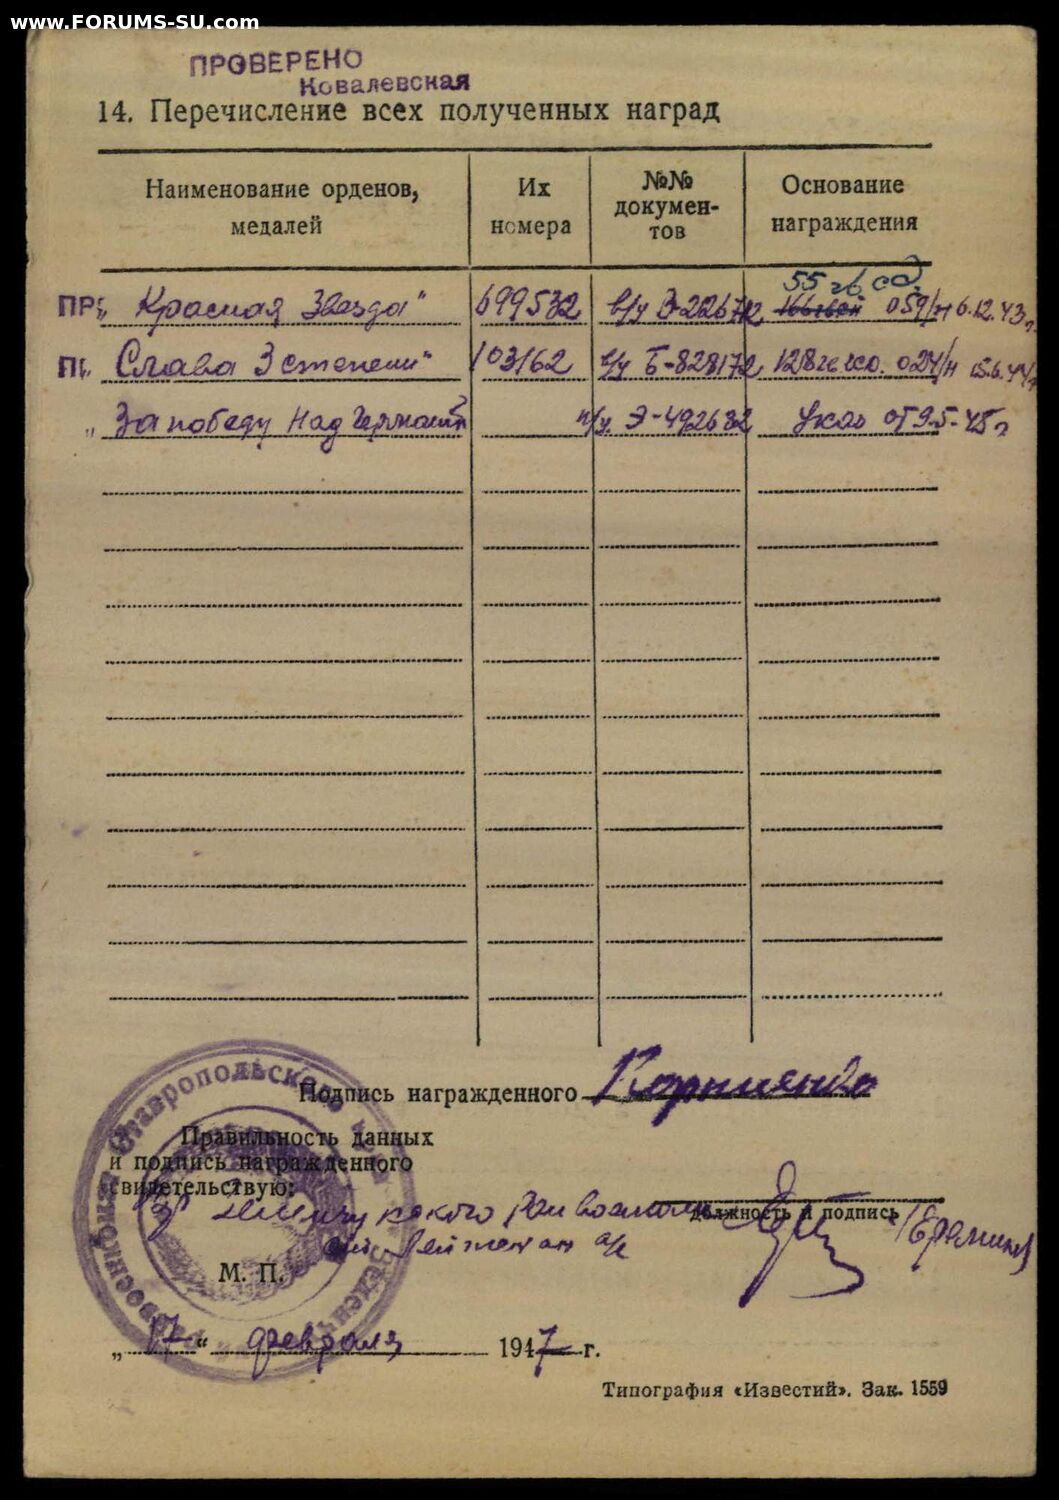 www.FORUMS-SU.com
ПРОВЕРЕНО
Ковалевская
14. Перечисление всех полученных наград
Наименование орденов, медалей
Их номера
№№ докумен-тов
Основание награждения
55 гв сд
"Красная Звезда" 699532 в/у 059/н 6.12.43г
"Слава 3 степени" 103162 в/у Б-828172 128 гв 024/н 15.6.44г
"За победу над Германией" п/у. Э-492682 Указ от 9.5-45г
Подпись награжденного Корниенко
Правильность данных
и подпись награжденного
свидетельствую:
должность и подпись
лейтенант а/с
М. П.
Ставропольского
„17“ февраля 1947 г.
Типография «Известий». Зак. 1559